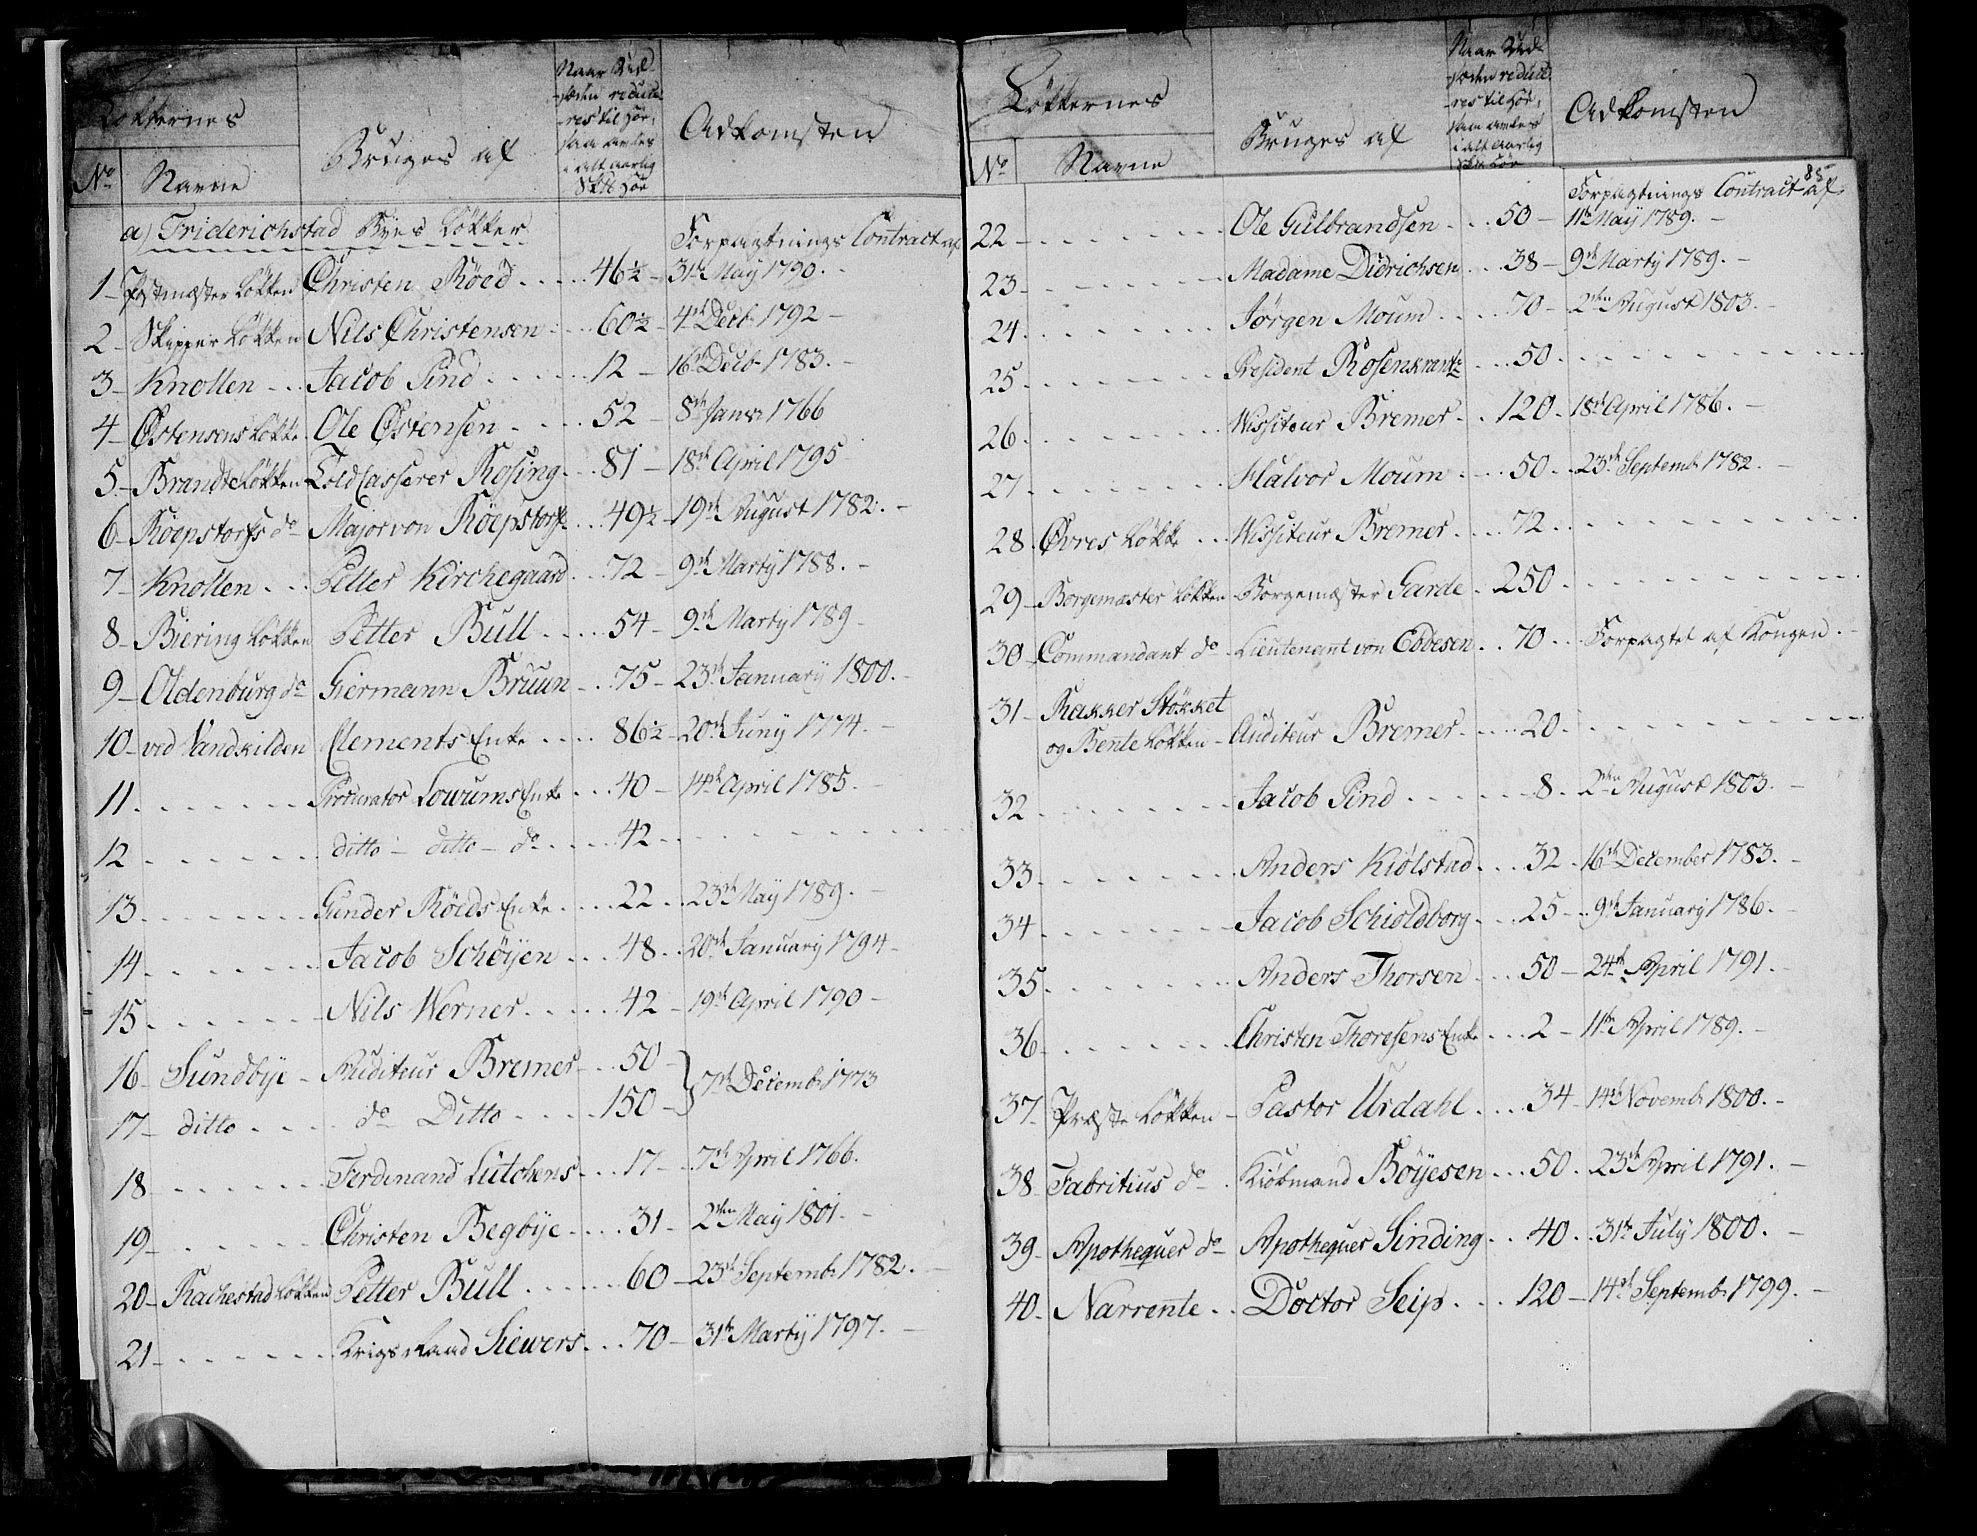 Løkkernes
No
Navne
Bruges af
Naar Ud-
-sæden reduce-
-res til Hør,
saa avles
i alt aarlig
Hør
Adkomsten
a) Friderichstad Byes Løkker
Forpagtnings Contract af
1 - Postmæster Løkken Christen Röed . . . . 46½ - 31te May 1790. -
2 - Skipper Løkken Nils Christensen . . . 60½ - 4de Decb. 1792 -
3 - Knollen . . . Jacob Pind . . . . 12 - 16de Decb. 1783. -
4 - Østensens Løkke Ole Østensen . . . . 52 - 8de Janvr 1766
5 - Brandt Løkken Told Casserer Rosing . . . 81 - 18de April 1795
6 - Röepstorfs do Major von Röepstorf . . . 49½ - 19de August 1782. -
7 - Knollen . . . Petter Kirchegaard . . . 72 - 9de Martÿ 1788. -
8 - Biering Løkken Petter Bull . . . . 54 - 9de Martÿ 1789 -
9 - Oldenburg do Giermann Bruun . . . 75 - 23de Januarÿ 1800. -
10 - ved Vandkilden Clements Enke . . . . 86½ - 20de Junÿ 1774. -
11 . . . . . Procurator Lowums Enke . . . 40 - 14de April 1785. -
12 . . . . . ditto - ditto - do . . . . 42 . . . . .
13 . . . . . Gunder Röeds Enke . . . . 22 . . 23de May 1789. -
14 . . . . . Jacob Schöÿen . . . 48 . . 20de Januarÿ 1794 -
15 . . . . . Nils Werner . . . . 42 - 19de April 1790 -
16 - Sundbÿe - Auditeur Bremer . . . 50 -
} 7de Decembr 1773
17 - ditto . . . . do Ditto . . . . 150 -
18 . . . . . Ferdinand Lütchens . . . 17 - 7de April 1766.
19 - . . . . . Christen Begbÿe . . . . 31 - 2den May 1801. -
20 - Rachestad Løkken Petter Bull . . . . 60 - 23de Septembr 1782. -
21 - . . . . . Krigsraad Siewers . . . 70 - 31te Martÿ 1797. -
Løkkernes
No
Navne
Bruges af
Naar Ud-
-sæden reduce-
-res til Hør,
saa avles
i alt aarlig
Hør
Adkomsten
85
Forpagtnings Contract af
22 - . . . . . Ole Gulbrandsen . . . 50 - 11te Maÿ 1789. -
23 - . . . . . Madame Didrichsen . . . 38 - 9de Martÿ 1789. -
24 . . . . . Jørgen Moum . . . . 70 - 2den August 1803. -
25 . . . . . President Rosenkrantz . . . 50 . . . . .
26 . . . . . Wissiteur Bremer . . 120 . 18de April 1786. -
27 . . . . . Halvor Moum . . . . 50 . . 23de Septembr 1782. -
28 . Øvres Løkke . . . Wissiteur Bremer . . . . 72 . . . . .
29 - Borgemæster Løkken - Borgemæster Garde . 250 . . . . .
30 - Commandant do - Lieutenant von Ebbesen . . 70 . . . Forpagtet af Kongen. -
31 - Rakker Stökket
og Bente Løkken - Auditeur Bremer . . . . 20 . . . . .
32 . . . . . Jacob Pind . . . . 8 . 2den August 1803. -
33 . . . . . Anders Kiölstad . . . 32 . 16de December 1783. -
34 . . . . . Jacob Schioldborg . . . 25 - . 9de Januarÿ 1786. -
35 . . . . . Anders Thorsen . . . 50 - 24de April 1791. -
36 . . . . . Christen Thoresens Enke . . . 2 - 11te April 1789. -
37 . Præste Løkken - Pastor Urdahl . . . . 34 - 14de Novembr 1800. -
38 - Fabritius do - . Kiöbmand Böÿesen . . . 50 . 23de April 1791. -
39 - Apothequer do - Apothequer Sinding . . 40 . . 31te Julÿ 1800. -
40 . Narrente . . Doctor Seip . . . 120 - 14de Septembr 1799. -